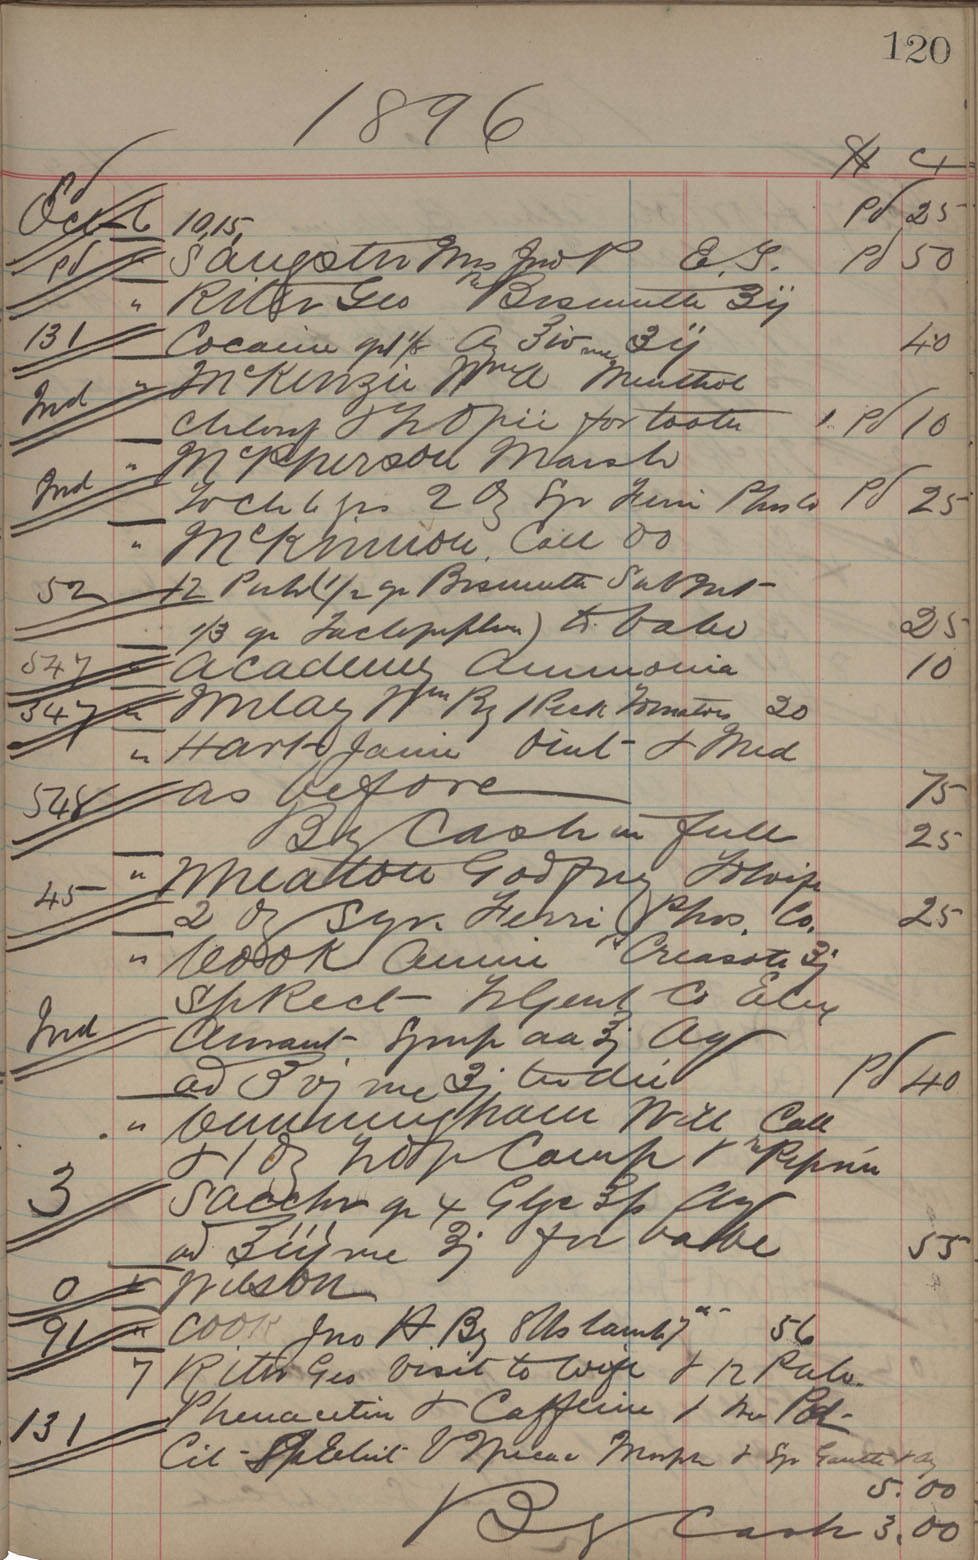 120
1896
$ ct
Oct 6 10,15, Pd 25
Pd " Sangster Mrs Jno P E.S. Pd 50
" Ritter Geo Bismuth ʒij
131 Cocaine Aq ℥iv ʒij 40
" McKenzie Wm A Menthol
Ind Chlorof & Tr Opii for tooth 1 Pd 10
" McPherson Marsh
Ind 2 Oz Syr Ferri Phos Co Pd 25
" McKinnon, Call 00
52 12 Pulv (1/2 gr Bismuth Sub Nit
1/3 gr Lactopeptin) to babe 25
547 " Academy Ammonia 10
347 " Imlay Wm By 1 Peck Tomatoes 20
" Hart Janie Oint & Med
548 as before 75
By Cash in full 25
" Wheaton Godfrey To wife
45 2 Oz Syr. Ferri Phos. Co. 25
" Cook Annie Creasote ʒj
Sp Rect Tr Gent Co Elix
Ind Aurant Syrup aa ʒj Aq
ad ℥vj me ʒj ter die Pd 40
" Cunningham Will Call
& 1 Oz Comp & Pepsin
3 Sacchr gr x Glyc Aq
ad ℥iij me ʒj for babe 55
0 " Wilson
91 " Cook Jno H By 8 lbs lamb 7" 56
7 Ritter Geo Visit to wife & 12 Pulv.
131 Phenacetin & Caffeine 1 Pot
Cit Morph & Syr & Aq
5.00
By Cash 3.00